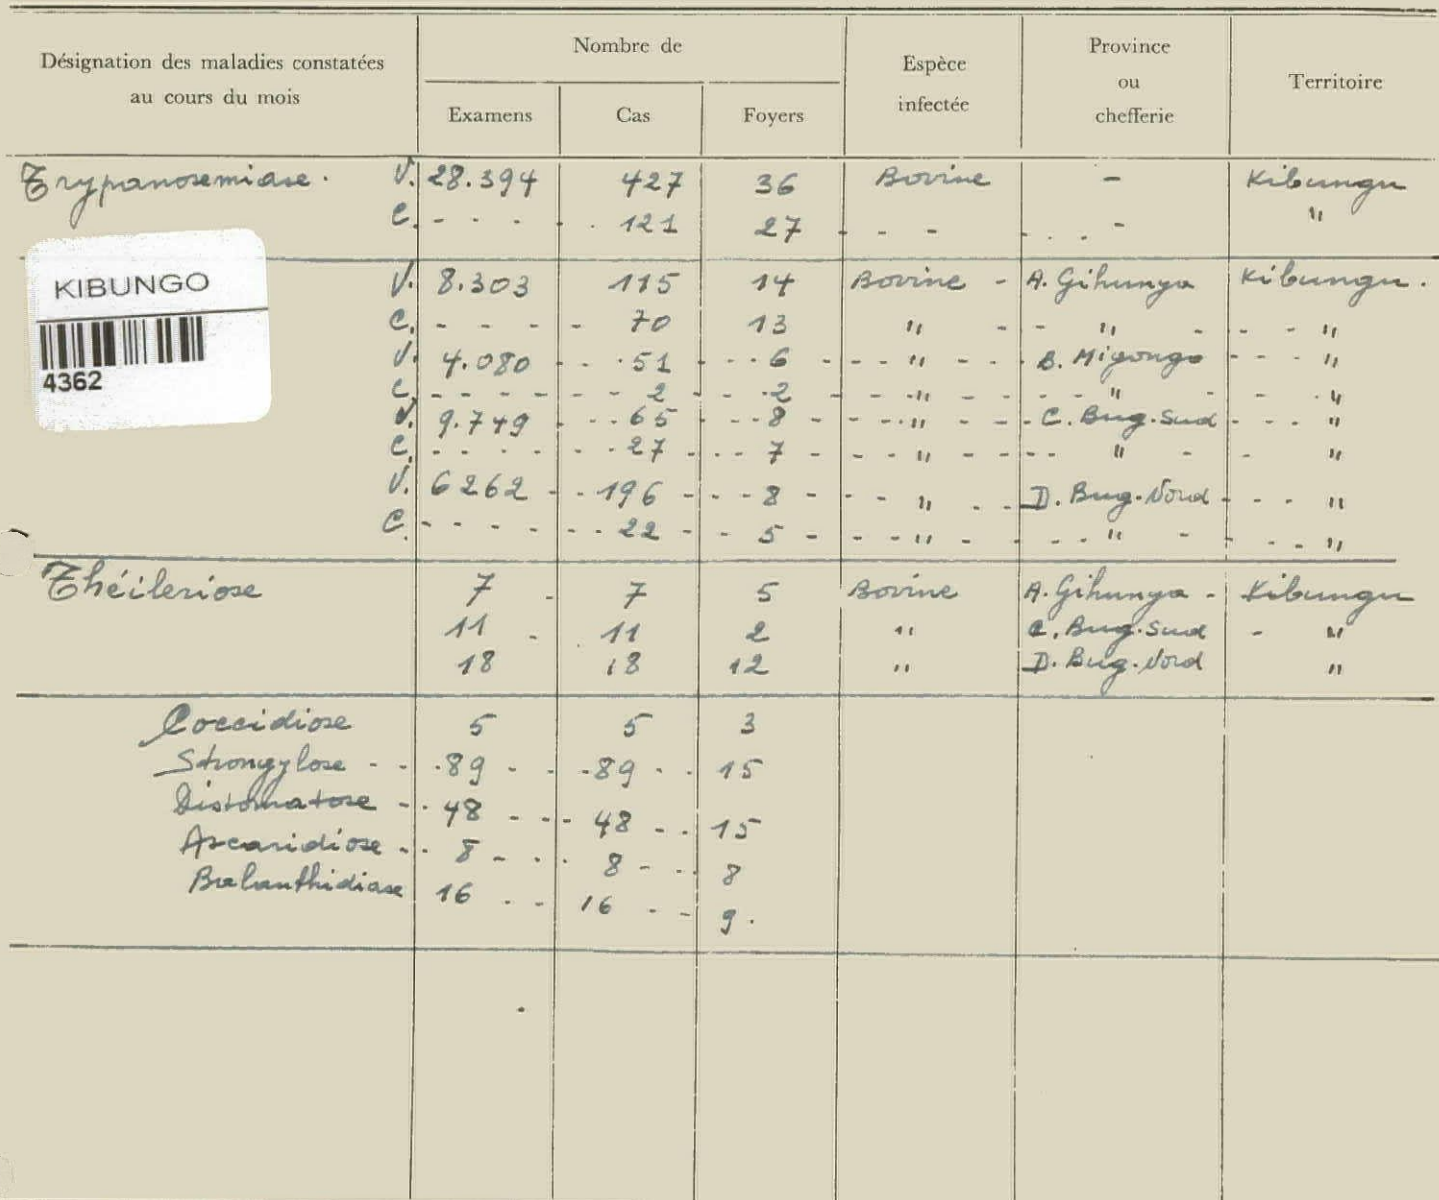 Désignation des maladies constatées
au cours du mois
Nombre de
Examens Cas Foyers
Espèce
infectée
Province
ou
chefferie
Territoire
Trypanosemiase. V. 28.394 427 36 Bovine - Kibungu
C. - - - - . 121 27 - - - - . . - "
KIBUNGO
4362
V. 8.303 115 14 Bovine - A. Gihunya Kibungu.
C. - - - - 70 13 " - - " - - - "
V. 4.080 - - . 51 - - - 6 - - - " - - - B. Migongo - - - "
C. - - - - - 2 - - . 2 - - - - " - - - - " - - . "
V. 9.749 - - - 65 - - - 8 - - - . " - - - C. Bug. Sud - - - "
C. - - - - - . 27 - - - 7 - - - - " - - - - " - - "
V. 6262 - - - 196 - - - - 8 - - - " . - - D. Bug. Nord - - - "
C. - - - - - - - 22 - - - 5 - - - - " - - - - - " - - - - "
Théileriose 7 - 7 5 Bovine A. Gihunya - Kibungu
11 - 11 2 " C. Bug. Sud - "
18 18 12 " D. Bug. Nord "
Coccidiose 5 5 3
Strongylose - - . 89 - - - 89 - . . 15
Distomatose - . 48 - - - - 48 - . . 15
Ascaridiose - . 8 - . . 8 - . . 8
Balanthidiase 16 - - 16 - - 9.